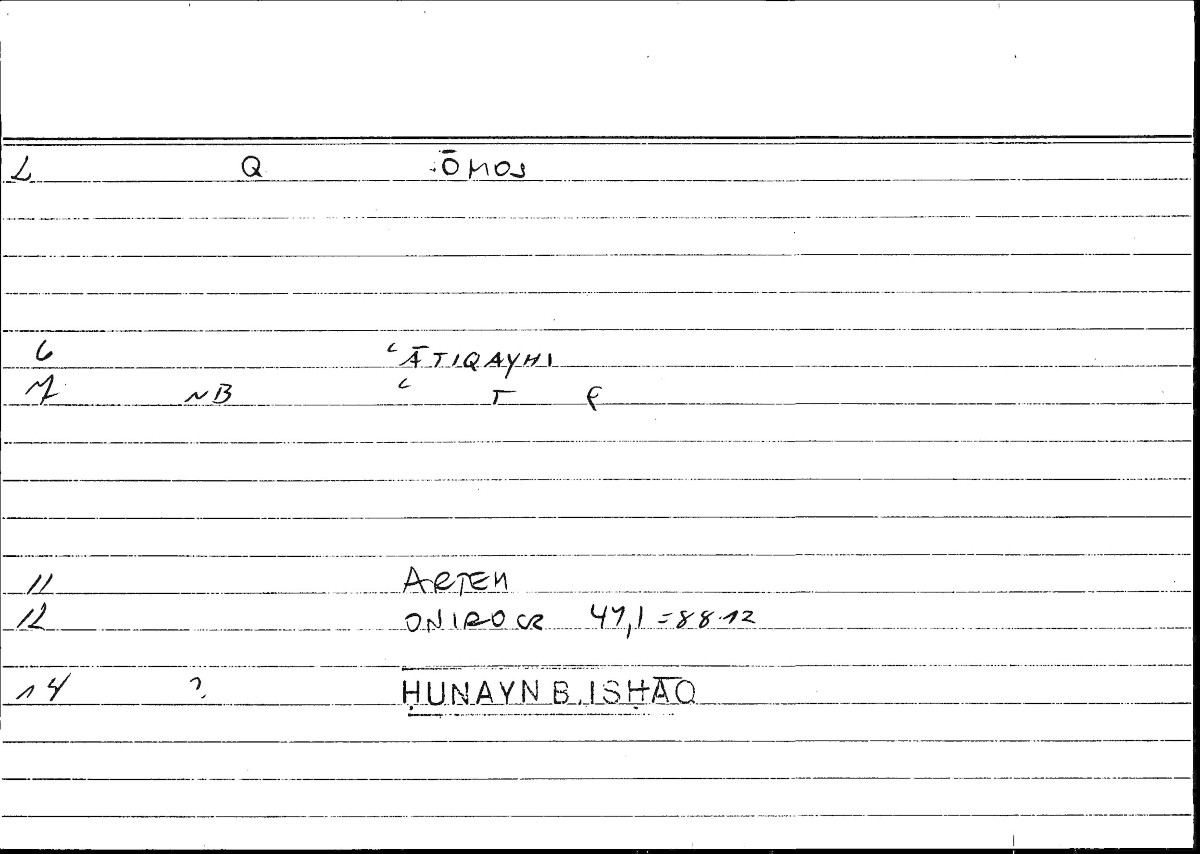 L Q ŌMOS
6 ʿĀTIQAYHI
7 NB ʿ T F
11 ARTEM
12 ONIROCR 47,1 = 88.12
14 ? ḤUNAYN B. ISḤĀQ